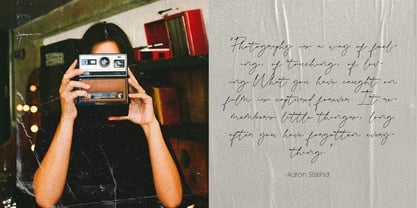 "Photography is a way of feel-
ing, of touching, of lov-
ing. What you have caught on
film is captured forever. It re-
members little things, long
after you have forgotten every-
thing."
-Aaron Siskind